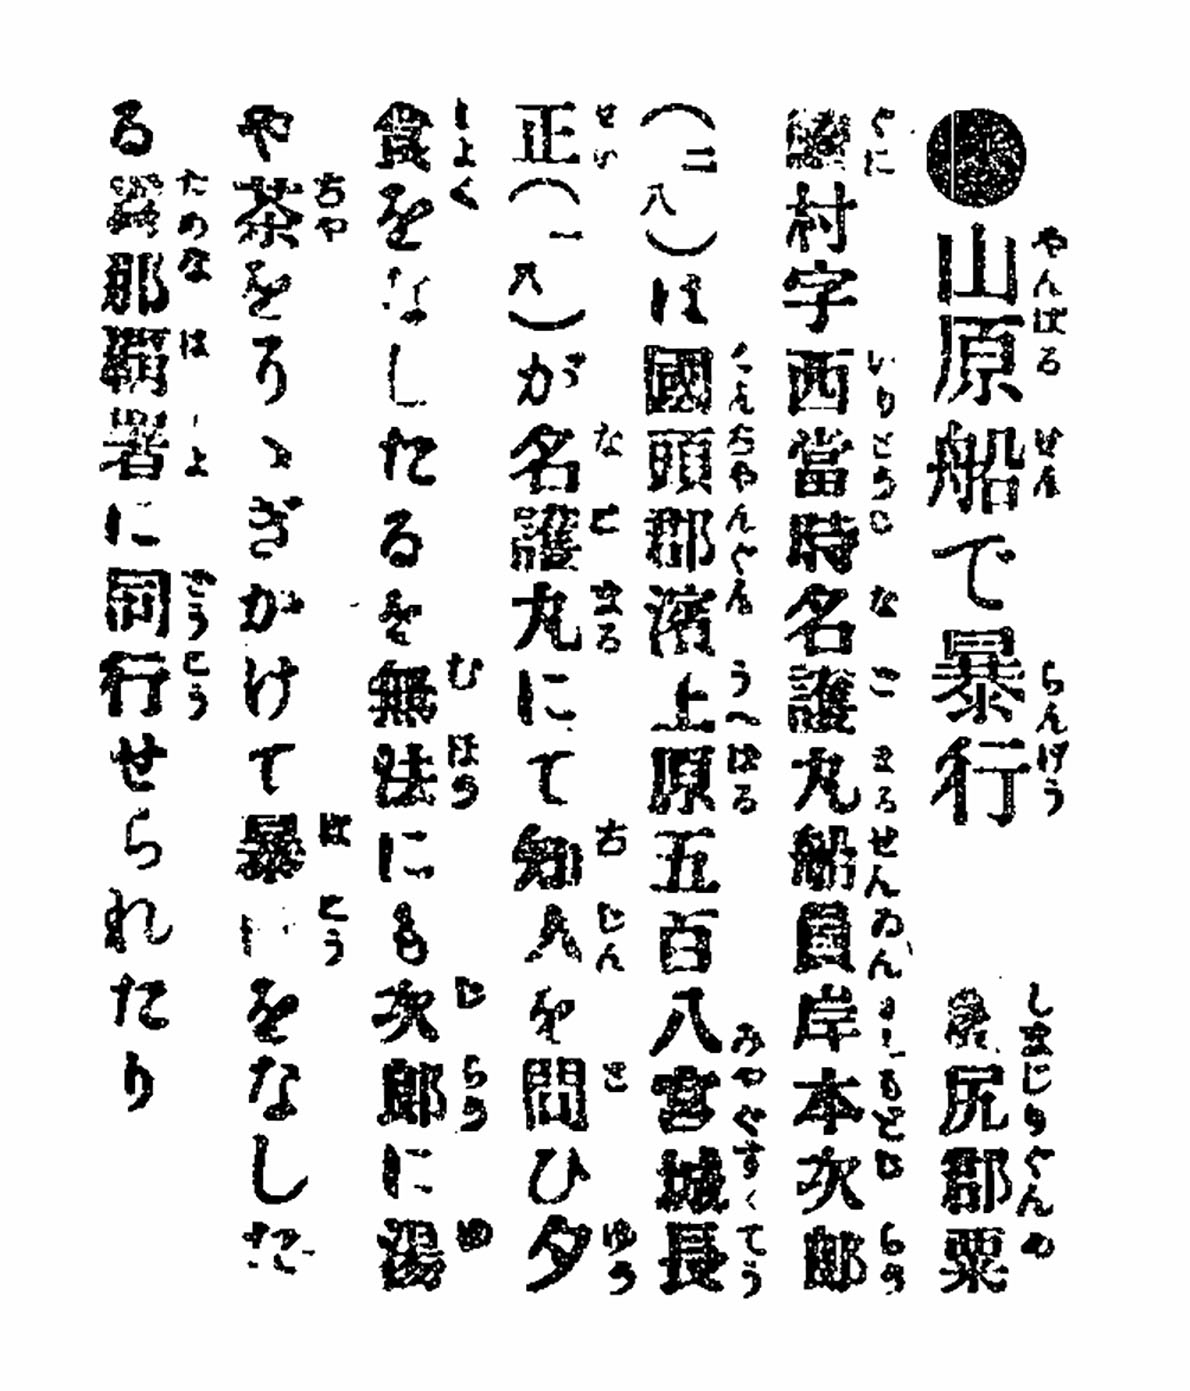 ●山原船で暴行 島尻郡粟
國村字西當時名護丸船員岸本次郎
(二八)は國頭郡濱上原五百八宮城長
正(一八)が名護丸にて知人を問ひ夕
食をなしたるを無法にも次郎に湯
や茶をろゝぎがけて暴 をなした
る爲那覇署に同行せられたり